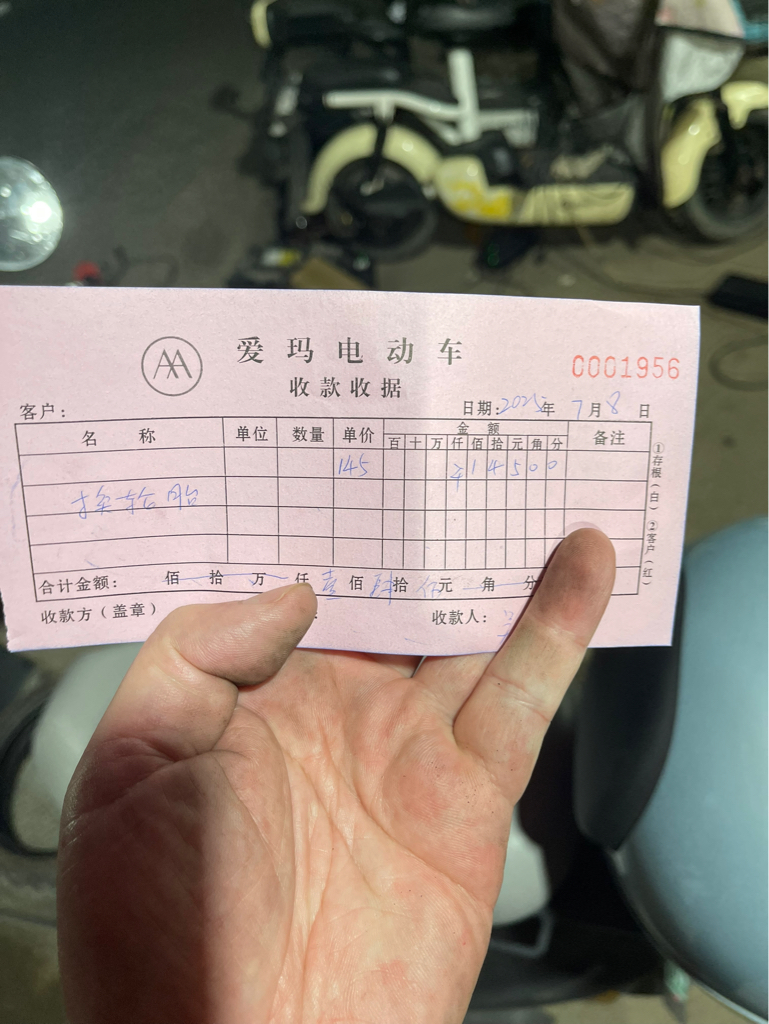 爱玛电动车
收款收据
0001956
客户：
日期：2025年 7月8日
名 称 单位 数量 单价 金 额 备注
百 十 万 仟 佰 拾 元 角 分
145 ¥ 1 4 5 0 0
换轮胎
合计金额： 佰 拾 万 仟 壹 佰 肆 拾 伍 元 角 分
收款方（盖章）
收款人：
①存根（白）②客户（红）